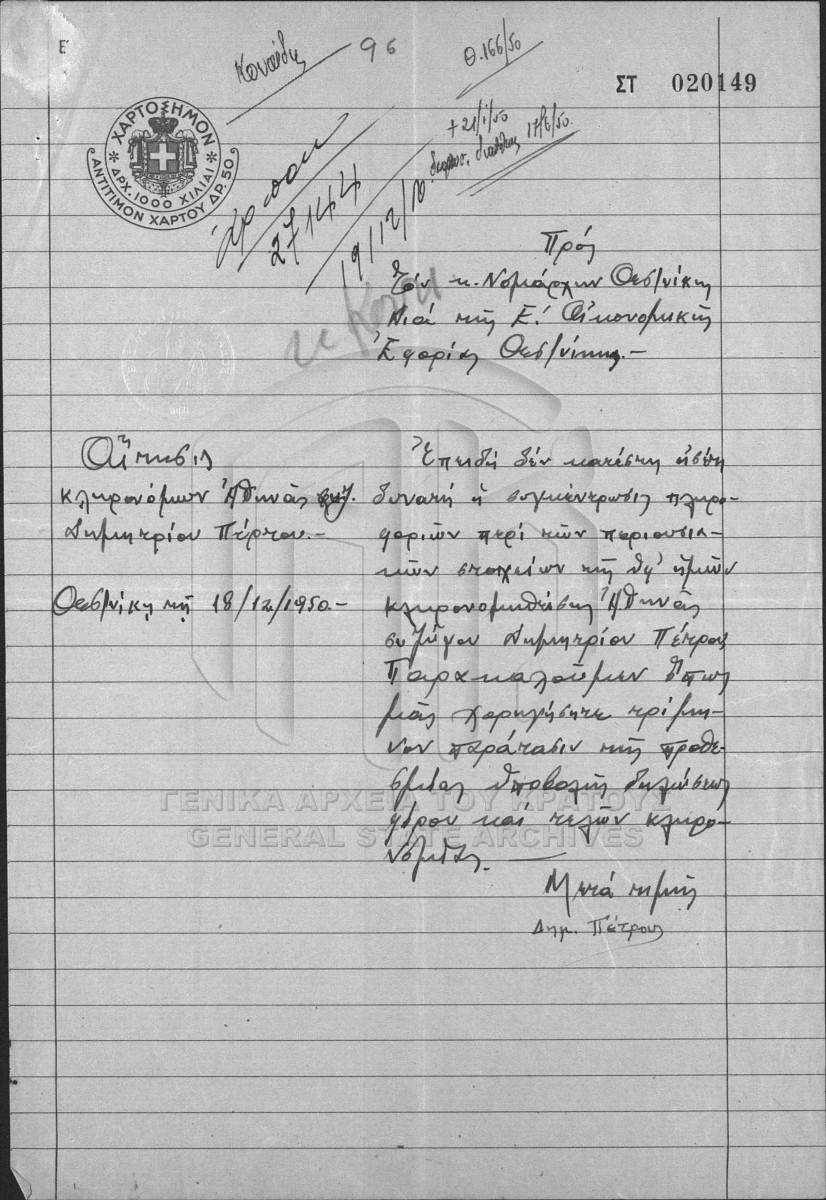 Ε'
96
Θ.166/50
ΣΤ 020149
ΧΑΡΤΟΣΗΜΟΝ
ΔΡΧ. 1000 ΧΙΛΙΑΙ
ΑΝΤΙΤΙΜΟΝ ΧΑΡΤΟΥ ΔΡ. 50
+ 21/1/50
δημοσ. διαθήκης 17/6/50.
27144
19/12/50
Πρός
Τόν κ. Νομάρχην Θεσ/νίκης
Διά τῆς Ε.' Οἰκονομικῆς
Ἐφορίας Θεσ/νίκης.—
Αἴτησις
κληρονόμων Ἀθηνᾶς συζ.
Δημητρίου Πέτρου.—
Θεσ/νίκη τῇ 18/12/1950.—
Ἐπειδή δέν κατέστη εἰσέτι
δυνατή ἡ συγκέντρωσις πληρο-
φοριῶν περί τῶν περιουσια-
κῶν στοιχείων τῆς ὑφ' ἡμῶν
κληρονομηθείσης Ἀθηνᾶς
συζύγου Δημητρίου Πέτρου
Παρακαλοῦμεν ὅπως
μᾶς χορηγήσητε τρίμη-
νον παράτασιν τῆς προθε-
σμίας ὑποβολῆς δηλώσεως
φόρου καί τελῶν κληρο-
νομίας.—
Μετά τιμῆς
Δημ. Πέτρου
ΓΕΝΙΚΑ ΑΡΧΕΙΑ ΤΟΥ ΚΡΑΤΟΥΣ
GENERAL STATE ARCHIVES